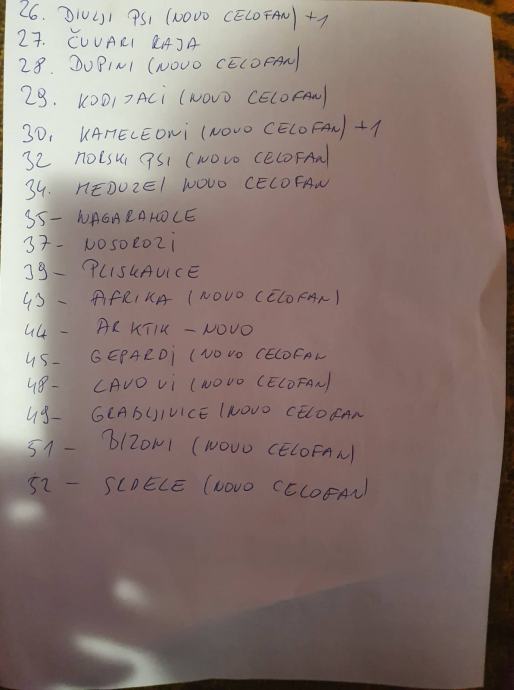 26. DIVLJI PSI (NOVO CELOFAN) +1
27. ČUVARI RAJA
28. DUPINI (NOVO CELOFAN)
29. KODIJACI (NOVO CELOFAN)
30. KAMELEONI (NOVO CELOFAN) +1
32 MORSKI PSI (NOVO CELOFAN)
34. MEDUZE/ NOVO CELOFAN
35- NAGARAHOLE
37- NOSOROZI
39- PLISKAVICE
43- AFRIKA (NOVO CELOFAN)
44- ARKTIK - NOVO
45- GEPARDI (NOVO CELOFAN
48- LAVOVI (NOVO CELOFAN)
49- GRABLJIVICE (NOVO CELOFAN
51- BIZONI (NOVO CELOFAN)
52- SRDELE (NOVO CELOFAN)